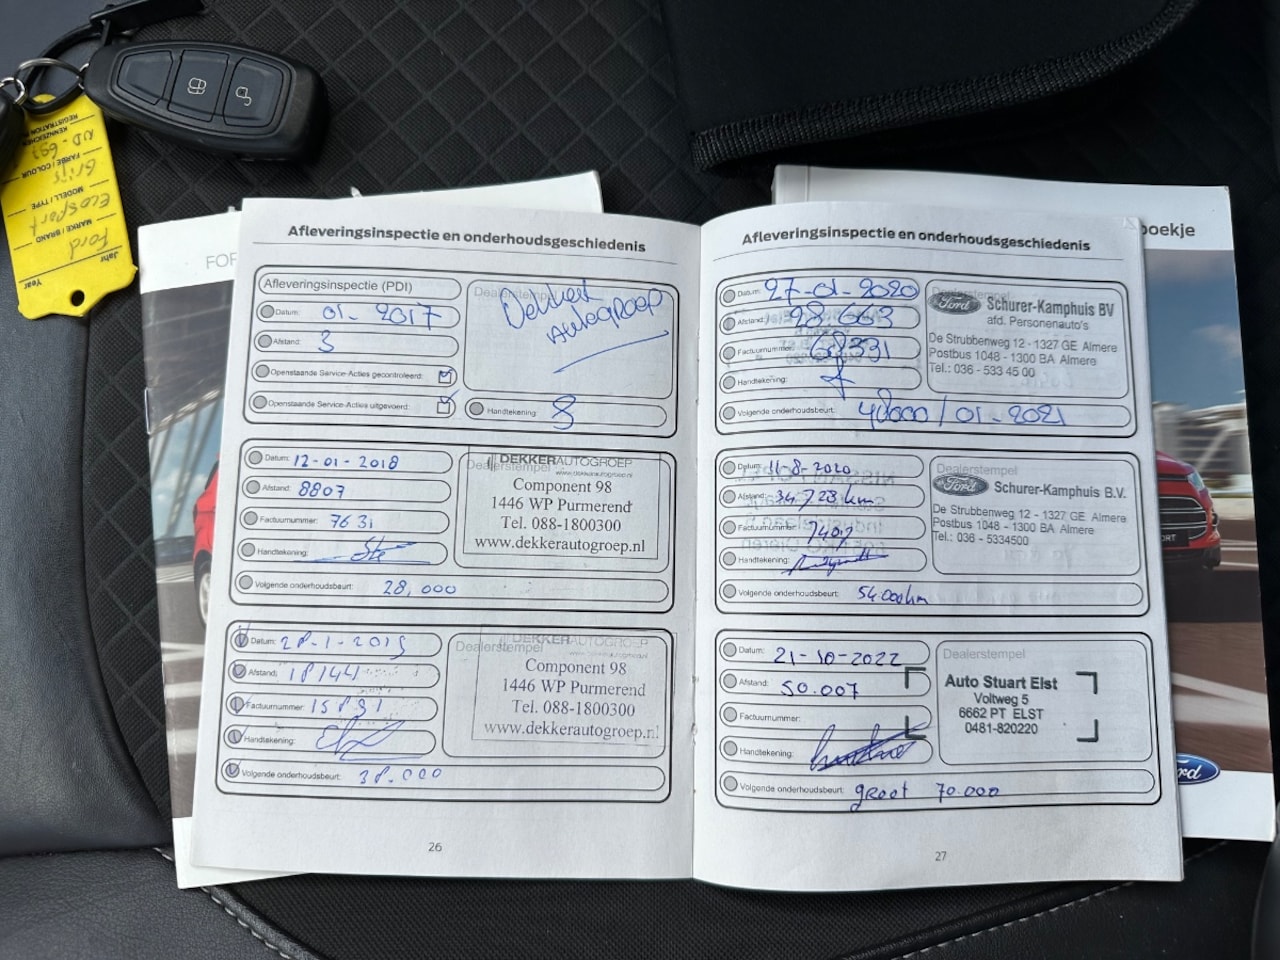 REGISTRATION
KENNZEICHEN
ND-697
FARBE / COLOUR
Grijs
MODELL / TYPE
Ecosport
MARKE / BRAND
Ford
Jahr
Year
FOR
boekje
Afleveringsinspectie en onderhoudsgeschiedenis
Afleveringsinspectie (PDI)
Datum: 01-2017
Afstand: 3
Openstaande Service-Acties gecontroleerd:
Openstaande Service-Acties uitgevoerd:
Dealerstempel
Autogroep
Handtekening:
Datum: 12-01-2018
Afstand: 8807
Factuurnummer: 7631
Handtekening:
Volgende onderhoudsbeurt: 28,000
Dealerstempel
DEKKERAUTOGROEP
www.dekkerautogroep.nl
Component 98
1446 WP Purmerend
Tel. 088-1800300
www.dekkerautogroep.nl
Datum: 28-1-2019
Afstand: 18144
Factuurnummer: 15831
Handtekening:
Volgende onderhoudsbeurt: 38.000
Dealerstempel
DEKKERAUTOGROEP
Component 98
1446 WP Purmerend
Tel. 088-1800300
www.dekkerautogroep.nl
26
Afleveringsinspectie en onderhoudsgeschiedenis
Datum: 27-01-2020
Afstand: 28663
Factuurnummer:
Handtekening:
Volgende onderhoudsbeurt: 40000/01-2021
Dealerstempel
Ford Schurer-Kamphuis BV
afd. Personenauto's
De Strubbenweg 12 - 1327 GE Almere
Postbus 1048 - 1300 BA Almere
Tel.: 036 - 533 45 00
Datum: 11-8-2020
Afstand: 34728 km
Factuurnummer: 7407
Handtekening:
Volgende onderhoudsbeurt: 54.000km
Dealerstempel
Ford Schurer-Kamphuis B.V.
De Strubbenweg 12 - 1327 GE Almere
Postbus 1048 - 1300 BA Almere
Tel.: 036 - 5334500
Datum: 21-10-2022
Afstand: 50.007
Factuurnummer:
Handtekening:
Volgende onderhoudsbeurt: groot 70.000
Dealerstempel
Auto Stuart Elst
Voltweg 5
6662 PT ELST
0481-820220
27